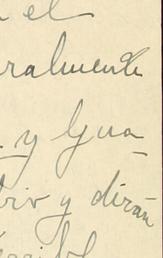 el
ralmente
y Gua-
rio y dirán